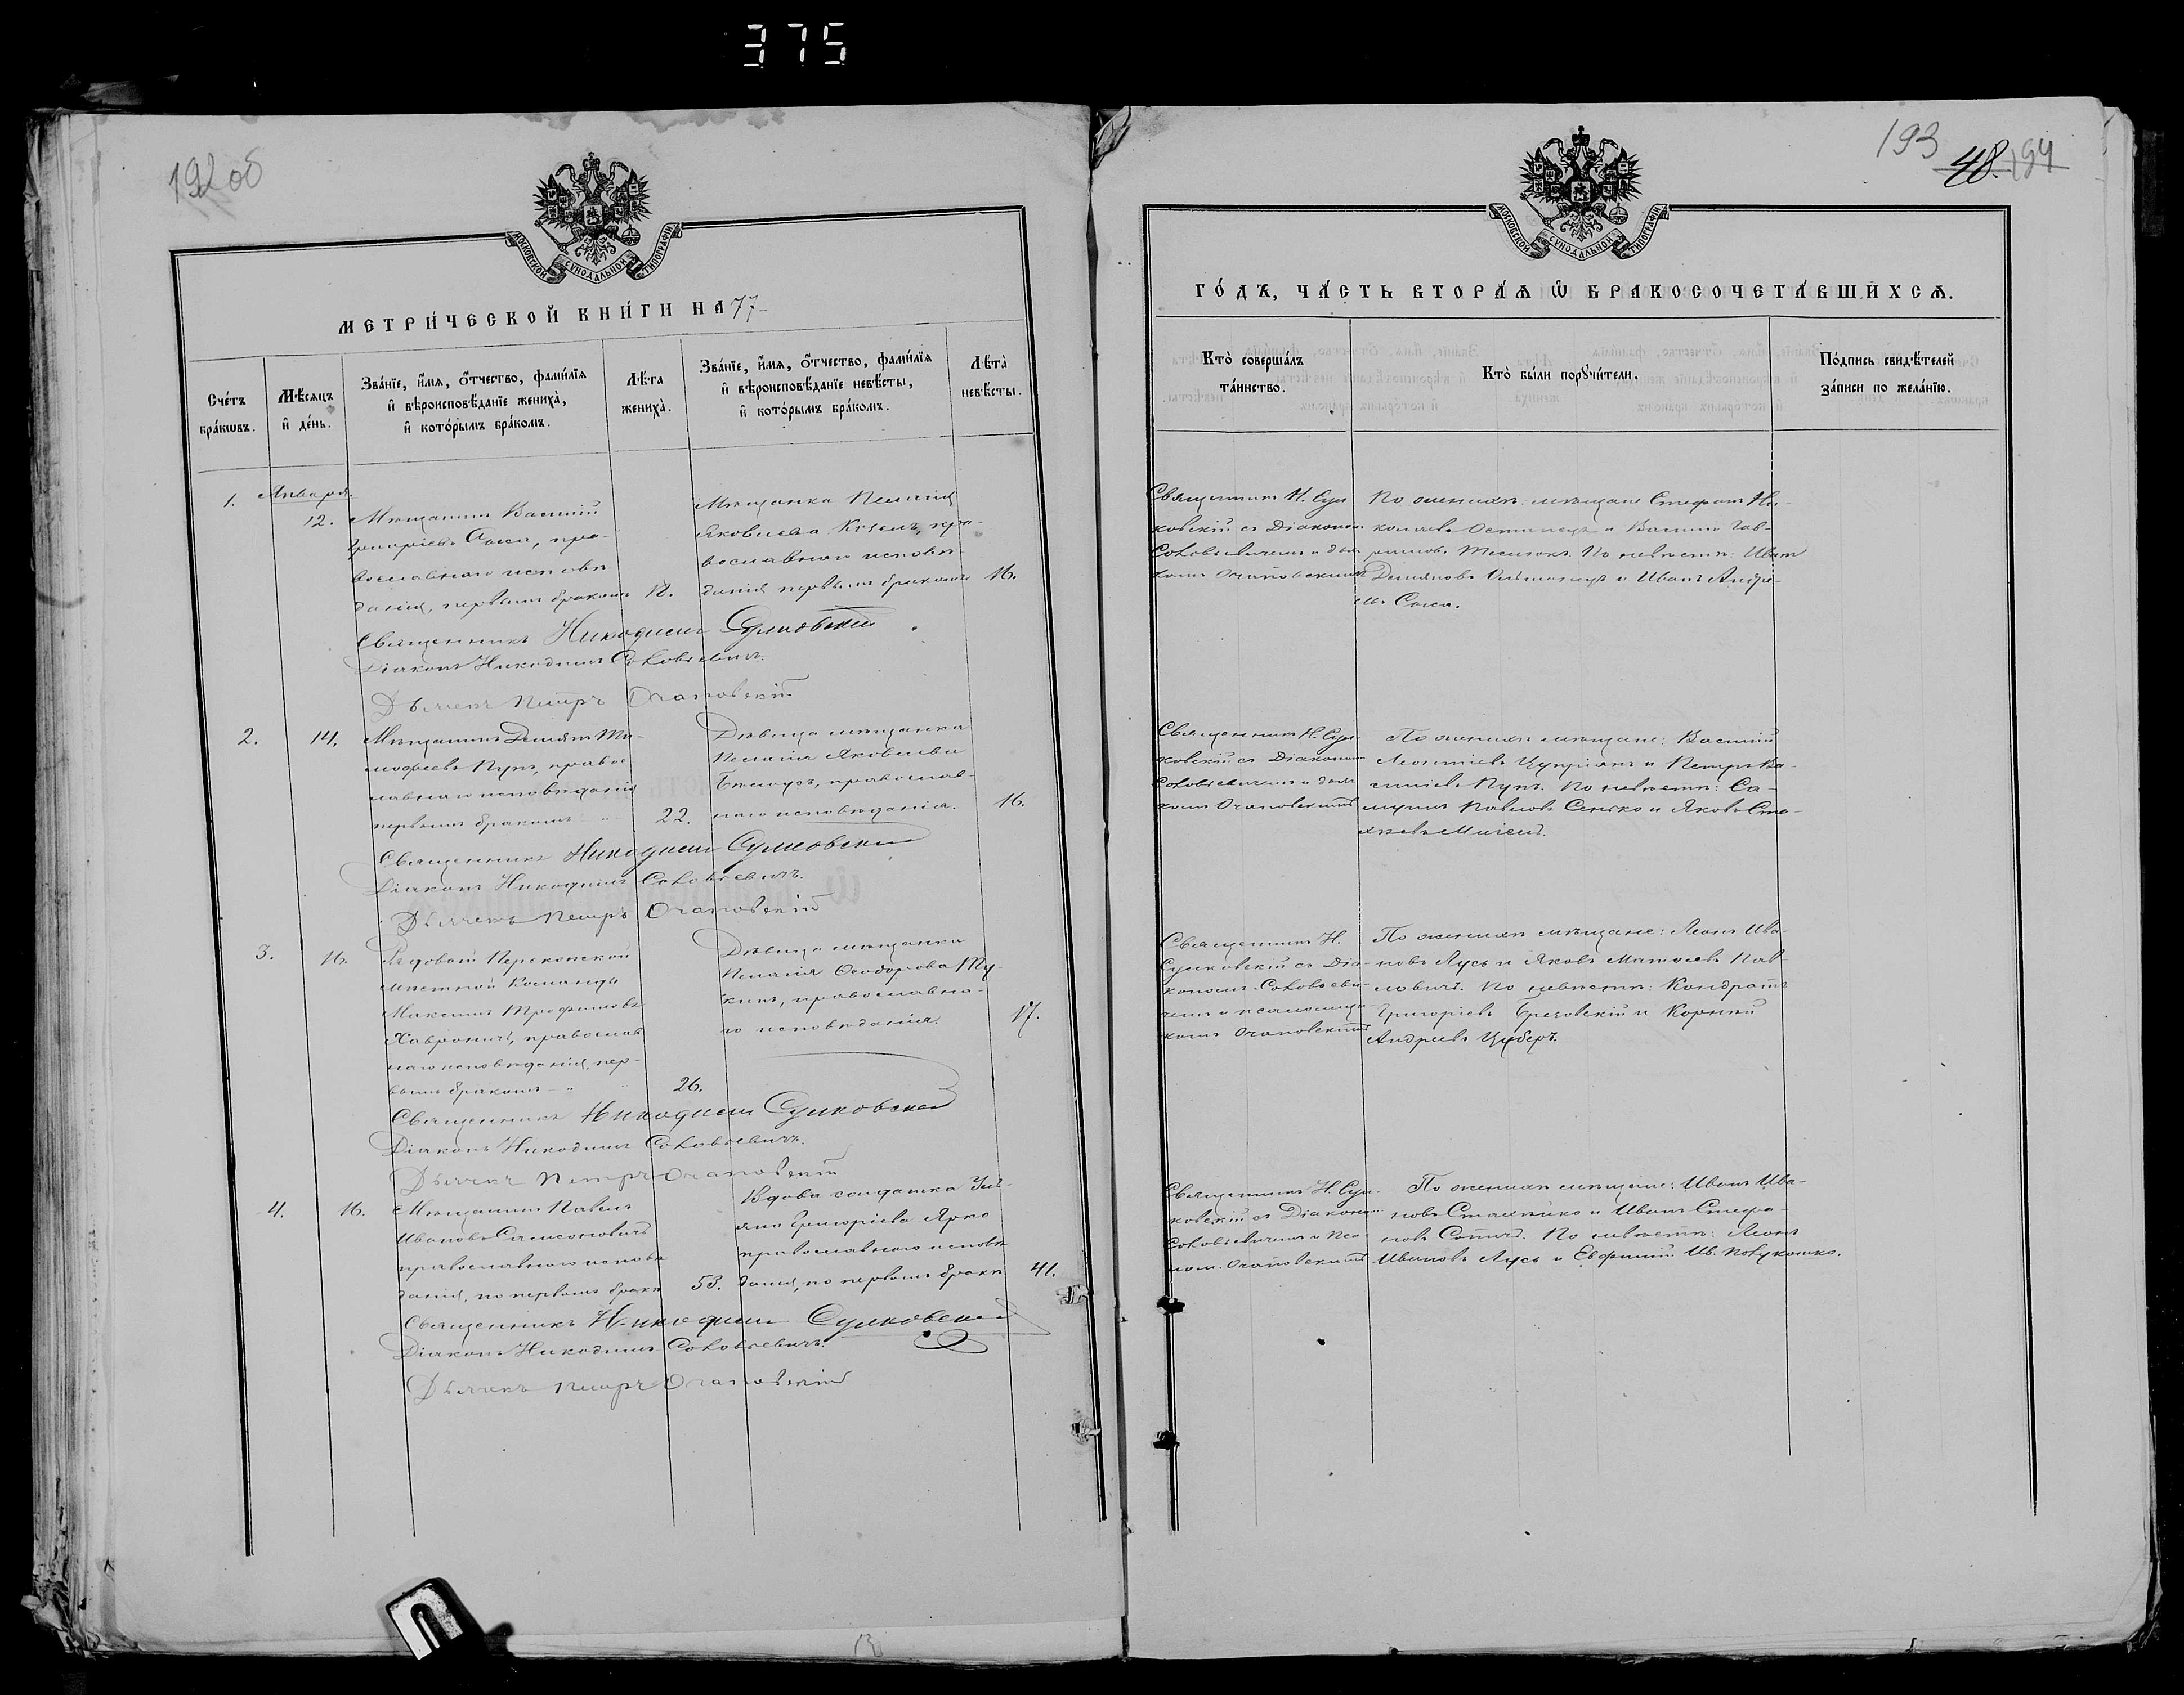 375
192 об
МОСКОВСКОЙ СѴНОДАЛЬНОЙ ТИПОГРАФІИ
МЕТРИ́ЧЕСКОЙ КНИ́ГИ НА 77
Сче́тъ бра́кѡвъ.
Мѣ́сяцъ и҆ де́нь.
Зва́нїе, и҆́мя, о҆́тчество, фами́лїя и҆ вѣроисповѣ́данїе жениха̀, и҆ кото́рымъ бра́комъ.
Лѣ́та жениха̀.
Зва́нїе, и҆́мя, о҆́тчество, фами́лїя и҆ вѣроисповѣ́данїе невѣ́сты, и҆ кото́рымъ бра́комъ.
Лѣ́та невѣ́сты.
1.
Января
12.
Мѣщанинъ Василій
Григоріевъ Сыса, пра-
вославнаго исповѣ
данія, первымъ бракомъ
18.
Мѣщанка Пелагія
Яковлева, пра-
вославнаго исповѣ
данія первымъ бракомъ
16.
Священникъ Никодимъ Сулковскій
Діаконъ Никодимъ Соловьевичъ.
Дьячекъ Петръ Очаповскій
2.
14.
Мѣщанинъ Демьянъ Ти-
мофеевъ Пупъ, правос
лавнаго исповѣданія
первымъ бракомъ
22.
Дѣвица мѣщанка
Пелагія Яковлева
православ-
наго исповѣданія.
16.
Священникъ Никодимъ Сулковскій
Діаконъ Никодимъ Соловьевичъ.
Дьячекъ Петръ Очаповскій
3.
16.
Рядовой Перекопской
мѣстной Команды
Максимъ Трофимовъ
Хавроничъ, православ
наго исповѣданія, пер-
вымъ бракомъ
26.
Дѣвица мѣщанка
Пелагія Ѳеодорова
православна-
го исповѣданія.
17.
Священникъ Никодимъ Сулковскій
Діаконъ Никодимъ Соловьевичъ.
Дьячекъ Петръ Очаповскій
4.
16.
Мѣщанинъ Павелъ
Ивановъ Самсоновичъ
православнаго исповѣ
данія, по первомъ бракѣ
53.
Вдова солдатка Уль-
яна Григоріева Ярко
православнаго исповѣ
данія, по первомъ бракѣ
41.
Священникъ Никодимъ Сулковскій
Діаконъ Никодимъ Соловьевичъ.
Дьячекъ Петръ Очаповскій
193
48. 194
МОСКОВСКОЙ СѴНОДАЛЬНОЙ ТИПОГРАФІИ
ГО́ДЪ, ЧА́СТЬ ВТОРА́Я Ѡ҆ БРАКОСОЧЕТА́ВШИХСЯ.
Кто̀ соверша́лъ та́инство.
Кто̀ бы́ли порꙋчи́тели.
По́дпись свидѣ́телей за́писи по жела́нїю.
Священникъ Н. Сул
ковскій съ Діакономъ
Соловьевичемъ и дьяч
комъ Очаповскимъ
По женихѣ: мѣщане Стефанъ Ни-
колаевъ и Василій Гав-
риловъ По невѣстѣ: Иванъ
Демьяновъ и Иванъ Андре-
евъ Сыса.
Священникъ Н. Сул-
ковскій съ Діакономъ
Соловьевичемъ и дьяч
комъ Очаповскимъ
По женихѣ мѣщане: Василій
Леонтіевъ и Петръ Ва-
силіевъ Пупъ. По невѣстѣ: Са-
муилъ Павловъ Сенько и Яковъ
Священникъ Н.
Сулковскій съ Діа-
кономъ Соловьеви-
чемъ и псаломщи-
комъ Очаповскимъ
По женихѣ мѣщане: Леонъ Ива-
новъ Лусь и Яковъ Матвѣевъ Пав-
ловичъ. По невѣстѣ: Кондратъ
Григоріевъ и Корнилій
Андреевъ Цуберъ.
Священникъ Н. Сул-
ковскій съ Діакономъ
Соловьевичемъ и Пса
лом. Очаповскимъ
По женихѣ мѣщане: Иванъ Ива-
новъ и Иванъ Стефа-
новъ По невѣстѣ: Леонъ
Ивановъ Лусь и Евфимій Ив.